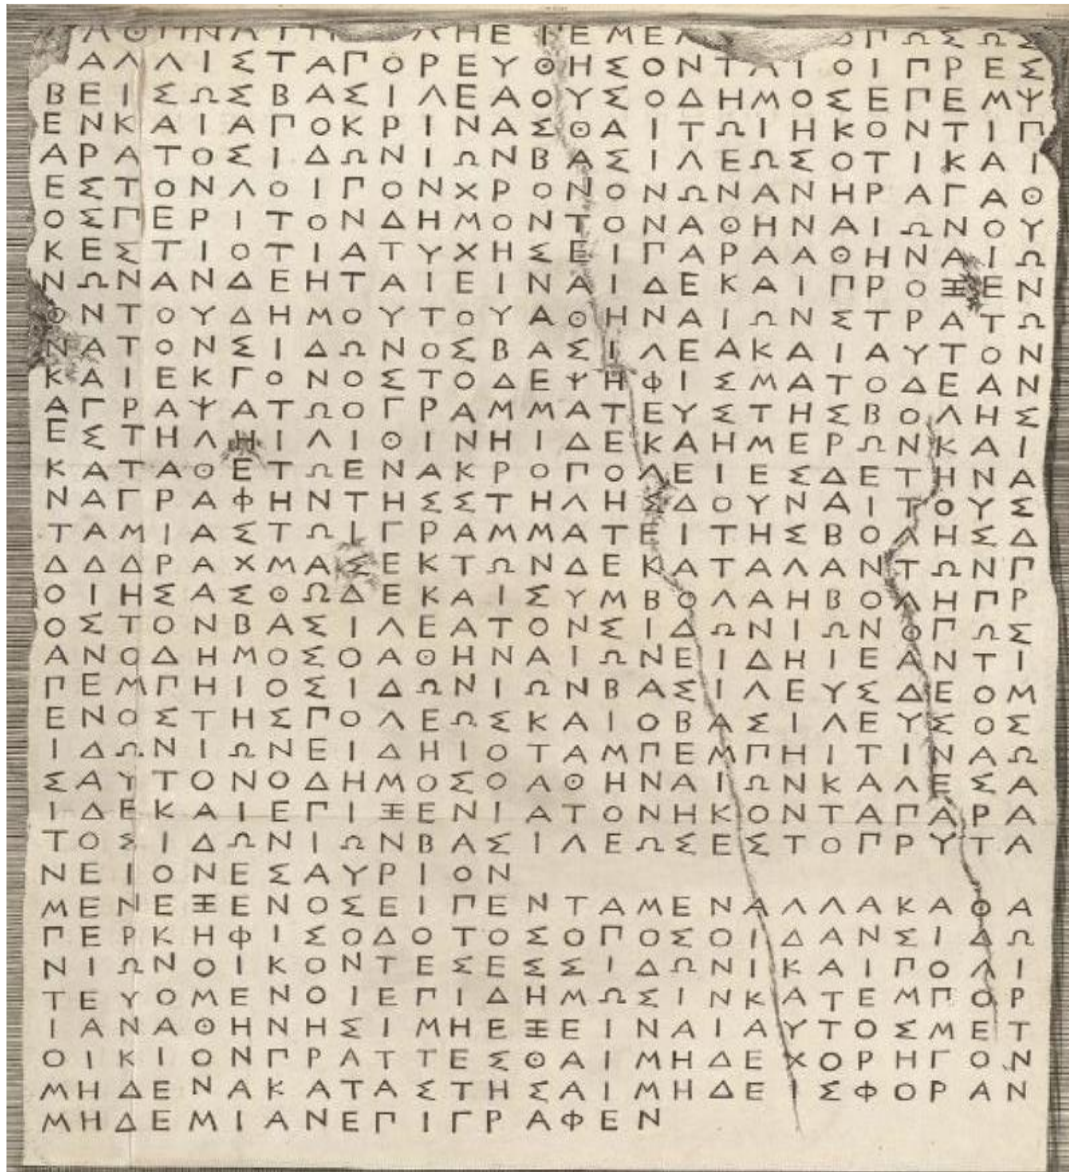 ΑΘΗΝΑΙΩ ΛΗΕΓΕΜΕΛ ΟΠΩΣΩΣ
ΑΛΛΙΣΤΑΠΟΡΕΥΘΗΣΟΝΤΑΙΟΙΠΡΕΣ
ΒΕΙΣΩΣΒΑΣΙΛΕΑΟΥΣΟΔΗΜΟΣΕΠΕΜΨ
ΕΝΚΑΙΑΠΟΚΡΙΝΑΣΘΑΙΤΩΙΗΚΟΝΤΙΠ
ΑΡΑΤΟΣΙΔΩΝΙΩΝΒΑΣΙΛΕΩΣΟΤΙΚΑΙ
ΕΣΤΟΝΛΟΙΠΟΝΧΡΟΝΟΝΩΝΑΝΗΡΑΓΑΘ
ΟΣΠΕΡΙΤΟΝΔΗΜΟΝΤΟΝΑΘΗΝΑΙΩΝΟΥ
ΚΕΣΤΙΟΤΙΑΤΥΧΗΣΕΙΠΑΡΑΑΘΗΝΑΙΩ
ΝΩΝΑΝΔΕΗΤΑΙΕΙΝΑΙΔΕΚΑΙΠΡΟΞΕΝ
ΟΝΤΟΥΔΗΜΟΥΤΟΥΑΘΗΝΑΙΩΝΣΤΡΑΤΩ
ΝΑΤΟΝΣΙΔΩΝΟΣΒΑΣΙΛΕΑΚΑΙΑΥΤΟΝ
ΚΑΙΕΚΓΟΝΟΣΤΟΔΕΨΗΦΙΣΜΑΤΟΔΕΑΝ
ΑΓΡΑΨΑΤΩΟΓΡΑΜΜΑΤΕΥΣΤΗΣΒΟΛΗΣ
ΕΣΤΗΛΗΙΛΙΘΙΝΗΙΔΕΚΑΗΜΕΡΩΝΚΑΙ
ΚΑΤΑΘΕΤΩΕΝΑΚΡΟΠΟΛΕΙΕΣΔΕΤΗΝΑ
ΝΑΓΡΑΦΗΝΤΗΣΣΤΗΛΗΣΔΟΥΝΑΙΤΟΥΣ
ΤΑΜΙΑΣΤΩΙΓΡΑΜΜΑΤΕΙΤΗΣΒΟΛΗΣΔ
ΔΔΔΡΑΧΜΑΣΕΚΤΩΝΔΕΚΑΤΑΛΑΝΤΩΝΠ
ΟΙΗΣΑΣΘΩΔΕΚΑΙΣΥΜΒΟΛΑΗΒΟΛΗΠΡ
ΟΣΤΟΝΒΑΣΙΛΕΑΤΟΝΣΙΔΩΝΙΩΝΟΠΩΣ
ΑΝΟΔΗΜΟΣΟΑΘΗΝΑΙΩΝΕΙΔΗΙΕΑΝΤΙ
ΠΕΜΠΗΙΟΣΙΔΩΝΙΩΝΒΑΣΙΛΕΥΣΔΕΟΜ
ΕΝΟΣΤΗΣΠΟΛΕΩΣΚΑΙΟΒΑΣΙΛΕΥΣΟΣ
ΙΔΩΝΙΩΝΕΙΔΗΙΟΤΑΜΠΕΜΠΗΙΤΙΝΑΩ
ΣΑΥΤΟΝΟΔΗΜΟΣΟΑΘΗΝΑΙΩΝΚΑΛΕΣΑ
ΙΔΕΚΑΙΕΠΙΞΕΝΙΑΤΟΝΗΚΟΝΤΑΠΑΡΑ
ΤΟΣΙΔΩΝΙΩΝΒΑΣΙΛΕΩΣΕΣΤΟΠΡΥΤΑ
ΝΕΙΟΝΕΣΑΥΡΙΟΝ
ΜΕΝΕΞΕΝΟΣΕΙΠΕΝΤΑΜΕΝΑΛΛΑΚΑΘΑ
ΠΕΡΚΗΦΙΣΟΔΟΤΟΣΟΠΟΣΟΙΔΑΝΣΙΔΩ
ΝΙΩΝΟΙΚΟΝΤΕΣΕΣΣΙΔΩΝΙΚΑΙΠΟΛΙ
ΤΕΥΟΜΕΝΟΙΕΠΙΔΗΜΩΣΙΝΚΑΤΕΜΠΟΡ
ΙΑΝΑΘΗΝΗΣΙΜΗΕΞΕΙΝΑΙΑΥΤΟΣΜΕΤ
ΟΙΚΙΟΝΠΡΑΤΤΕΣΘΑΙΜΗΔΕΧΟΡΗΓΟΝ
ΜΗΔΕΝΑΚΑΤΑΣΤΗΣΑΙΜΗΔΕΙΣΦΟΡΑΝ
ΜΗΔΕΜΙΑΝΕΠΙΓΡΑΦΕΝ